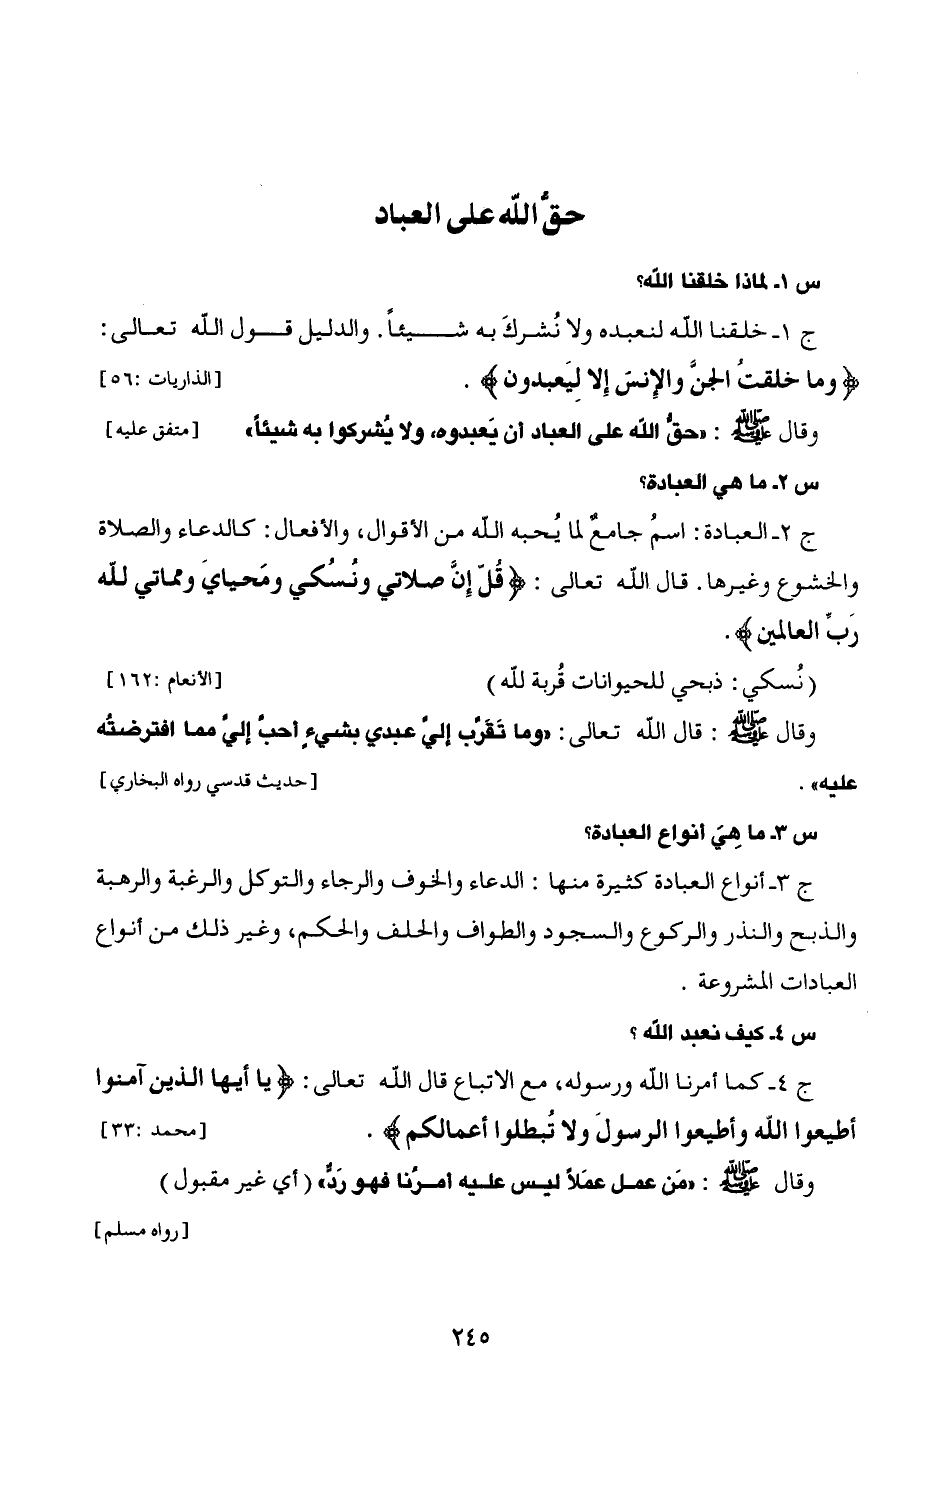 حقُّ الله على العباد
س ١ـ لماذا خلقنا الله؟
ج ١ـ خلقنا الله لنعبده ولا نُشركَ به شـــيئاً. والدليل قـــول الله تعـالى:
﴿وما خلقتُ الجنَّ والإنسَ إلا لِيَعبدون﴾ . [الذاريات :٥٦]
وقال ﷺ : «حقُّ الله على العباد أن يَعبدوه، ولا يُشركوا به شيئاً» [متفق عليه]
س ٢ـ ما هي العبادة؟
ج ٢ـ العبادة: اسمُ جامعٌ لما يُحبه الله من الأقوال، والأفعال: كالدعاء والصلاة
والخشوع وغيرها. قال الله تعالى : ﴿قُلّ إنَّ صلاتي ونُسُكي ومَحيايَ ومماتي لله
رَبِّ العالمين﴾.
(نُسكي: ذبحي للحيوانات قُربة لله) [الأنعام :١٦٢]
وقال ﷺ : قال الله تعالى: «وما تَقَرَّب إليَّ عبدي بشيءٍ أحبَّ إليَّ مما افترضتُه
عليه» . [حديث قدسي رواه البخاري]
س ٣ـ ما هِيَ أنواع العبادة؟
ج ٣ـ أنواع العبادة كثيرة منها : الدعاء والخوف والرجاء والتوكل والرغبة والرهبة
والذبح والنذر والركوع والسجود والطواف والحلف والحكم، وغير ذلك من أنواع
العبادات المشروعة .
س ٤ـ كيف نعبد الله ؟
ج ٤ـ كما أمرنا الله ورسوله، مع الاتباع قال الله تعالى: ﴿يا أيها الذين آمنوا
أطيعوا الله وأطيعوا الرسولَ ولا تُبطلوا أعمالكم﴾ . [محمد :٣٣]
وقال ﷺ : «مَن عمـل عمَلاً ليس عليه أمـرُنا فهو رَدٌّ» (أي غير مقبول)
[رواه مسلم]
٢٤٥